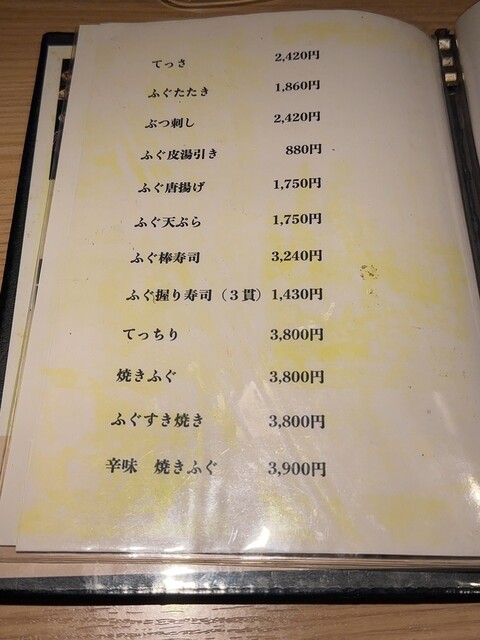 てっさ 2,420円
ふぐたたき 1,860円
ぶつ刺し 2,420円
ふぐ皮湯引き 880円
ふぐ唐揚げ 1,750円
ふぐ天ぷら 1,750円
ふぐ棒寿司 3,240円
ふぐ握り寿司（３貫） 1,430円
てっちり 3,800円
焼きふぐ 3,800円
ふぐすき焼き 3,800円
辛味　焼きふぐ 3,900円